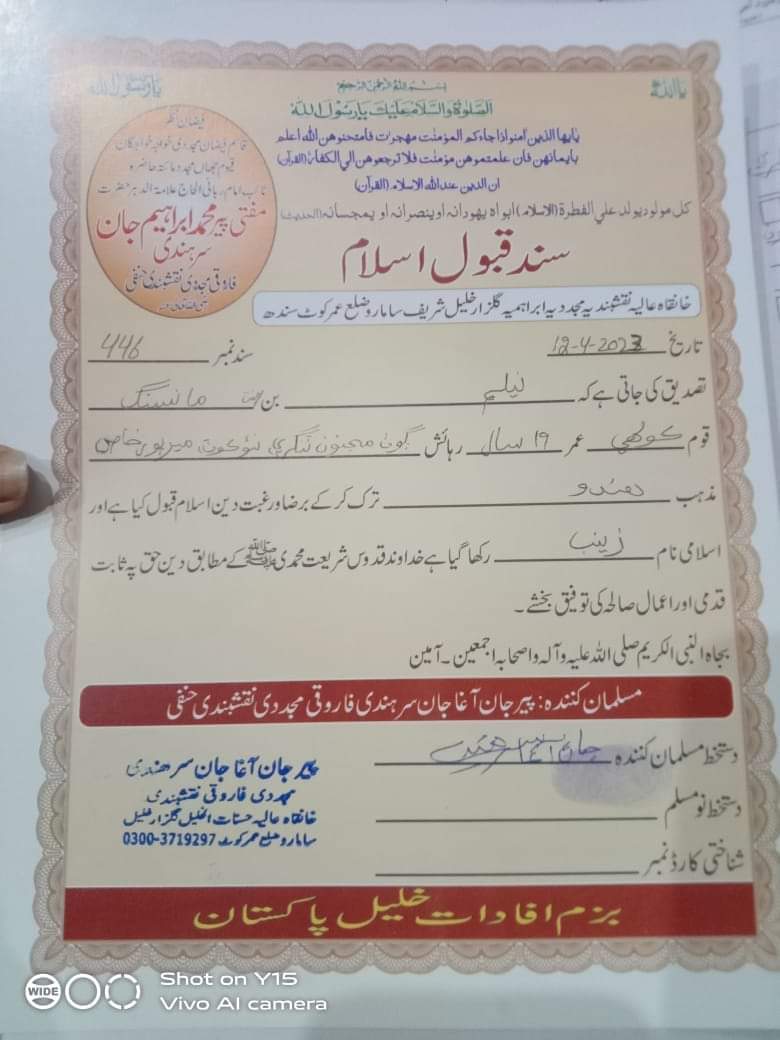 بسم اللہ الرحمن الرحیم
یااللہ
یارسول اللہ
الصلوٰۃ والسلام علیک یارسول اللہ
یایھا الذین امنو اذا جاءکم المؤمنت مھجرات فامتحنوھن اللہ اعلم
بایمانھن فان علمتموھن مؤمنت فلا ترجعوھن الی الکفار (القرآن)
ان الدین عند اللہ الاسلام (القرآن)
کل مولود یولد علی الفطرۃ (الاسلام) ابواہ یھودانہ اوینصرانہ او یمجسانہ (الحدیث)
فیضان نظر
قاسم فیضان مجددی خواجہ خواجگان
قیوم جہاں مجدد مائتہ حاضرہ
نائب امام ربانی الحاج علامۃ الدھر حضرت
مفتی پیر محمد ابراہیم جان
سرہندی
فاروقی مجددی نقشبندی حنفی
سند قبول اسلام
خانقاہ عالیہ نقشبندیہ مجددیہ ابراہیمیہ گلزار خلیل شریف سامارو ضلع عمرکوٹ سندھ
تاریخ 12-4-2023 سند نمبر 446
تصدیق کی جاتی ہے کہ نیلم بن مانسنگ
قوم کولھی عمر ۱۹ سال رہائش ڳوٺ مجنون نگري نوڪوٽ، ميرپورخاص
مذہب ھندو ترک کر کے برضا ورغبت دین اسلام قبول کیا ہے اور
اسلامی نام زینب رکھا گیا ہے خداوند قدوس شریعت محمدی ﷺ کے مطابق دین حق پہ ثابت
قدمی اور اعمال صالحہ کی توفیق بخشے۔
بجاہ النبی الکریم صلی اللہ علیہ وآلہ واصحابہ اجمعین۔ آمین
مسلمان کنندہ: پیر جان آغا جان سرہندی فاروقی مجددی نقشبندی حنفی
دستخط مسلمان کنندہ
دستخط نو مسلم
شناختی کارڈ نمبر
پیر جان آغا جان سرھندی
مجددی فاروقی نقشبندی
خانقاہ عالیہ حسنات الخلیل گلزار خلیل
سامارو ضلع عمرکوٹ 0300-3719297
بزم افادات خلیل پاکستان
WIDE
Shot on Y15
Vivo AI camera